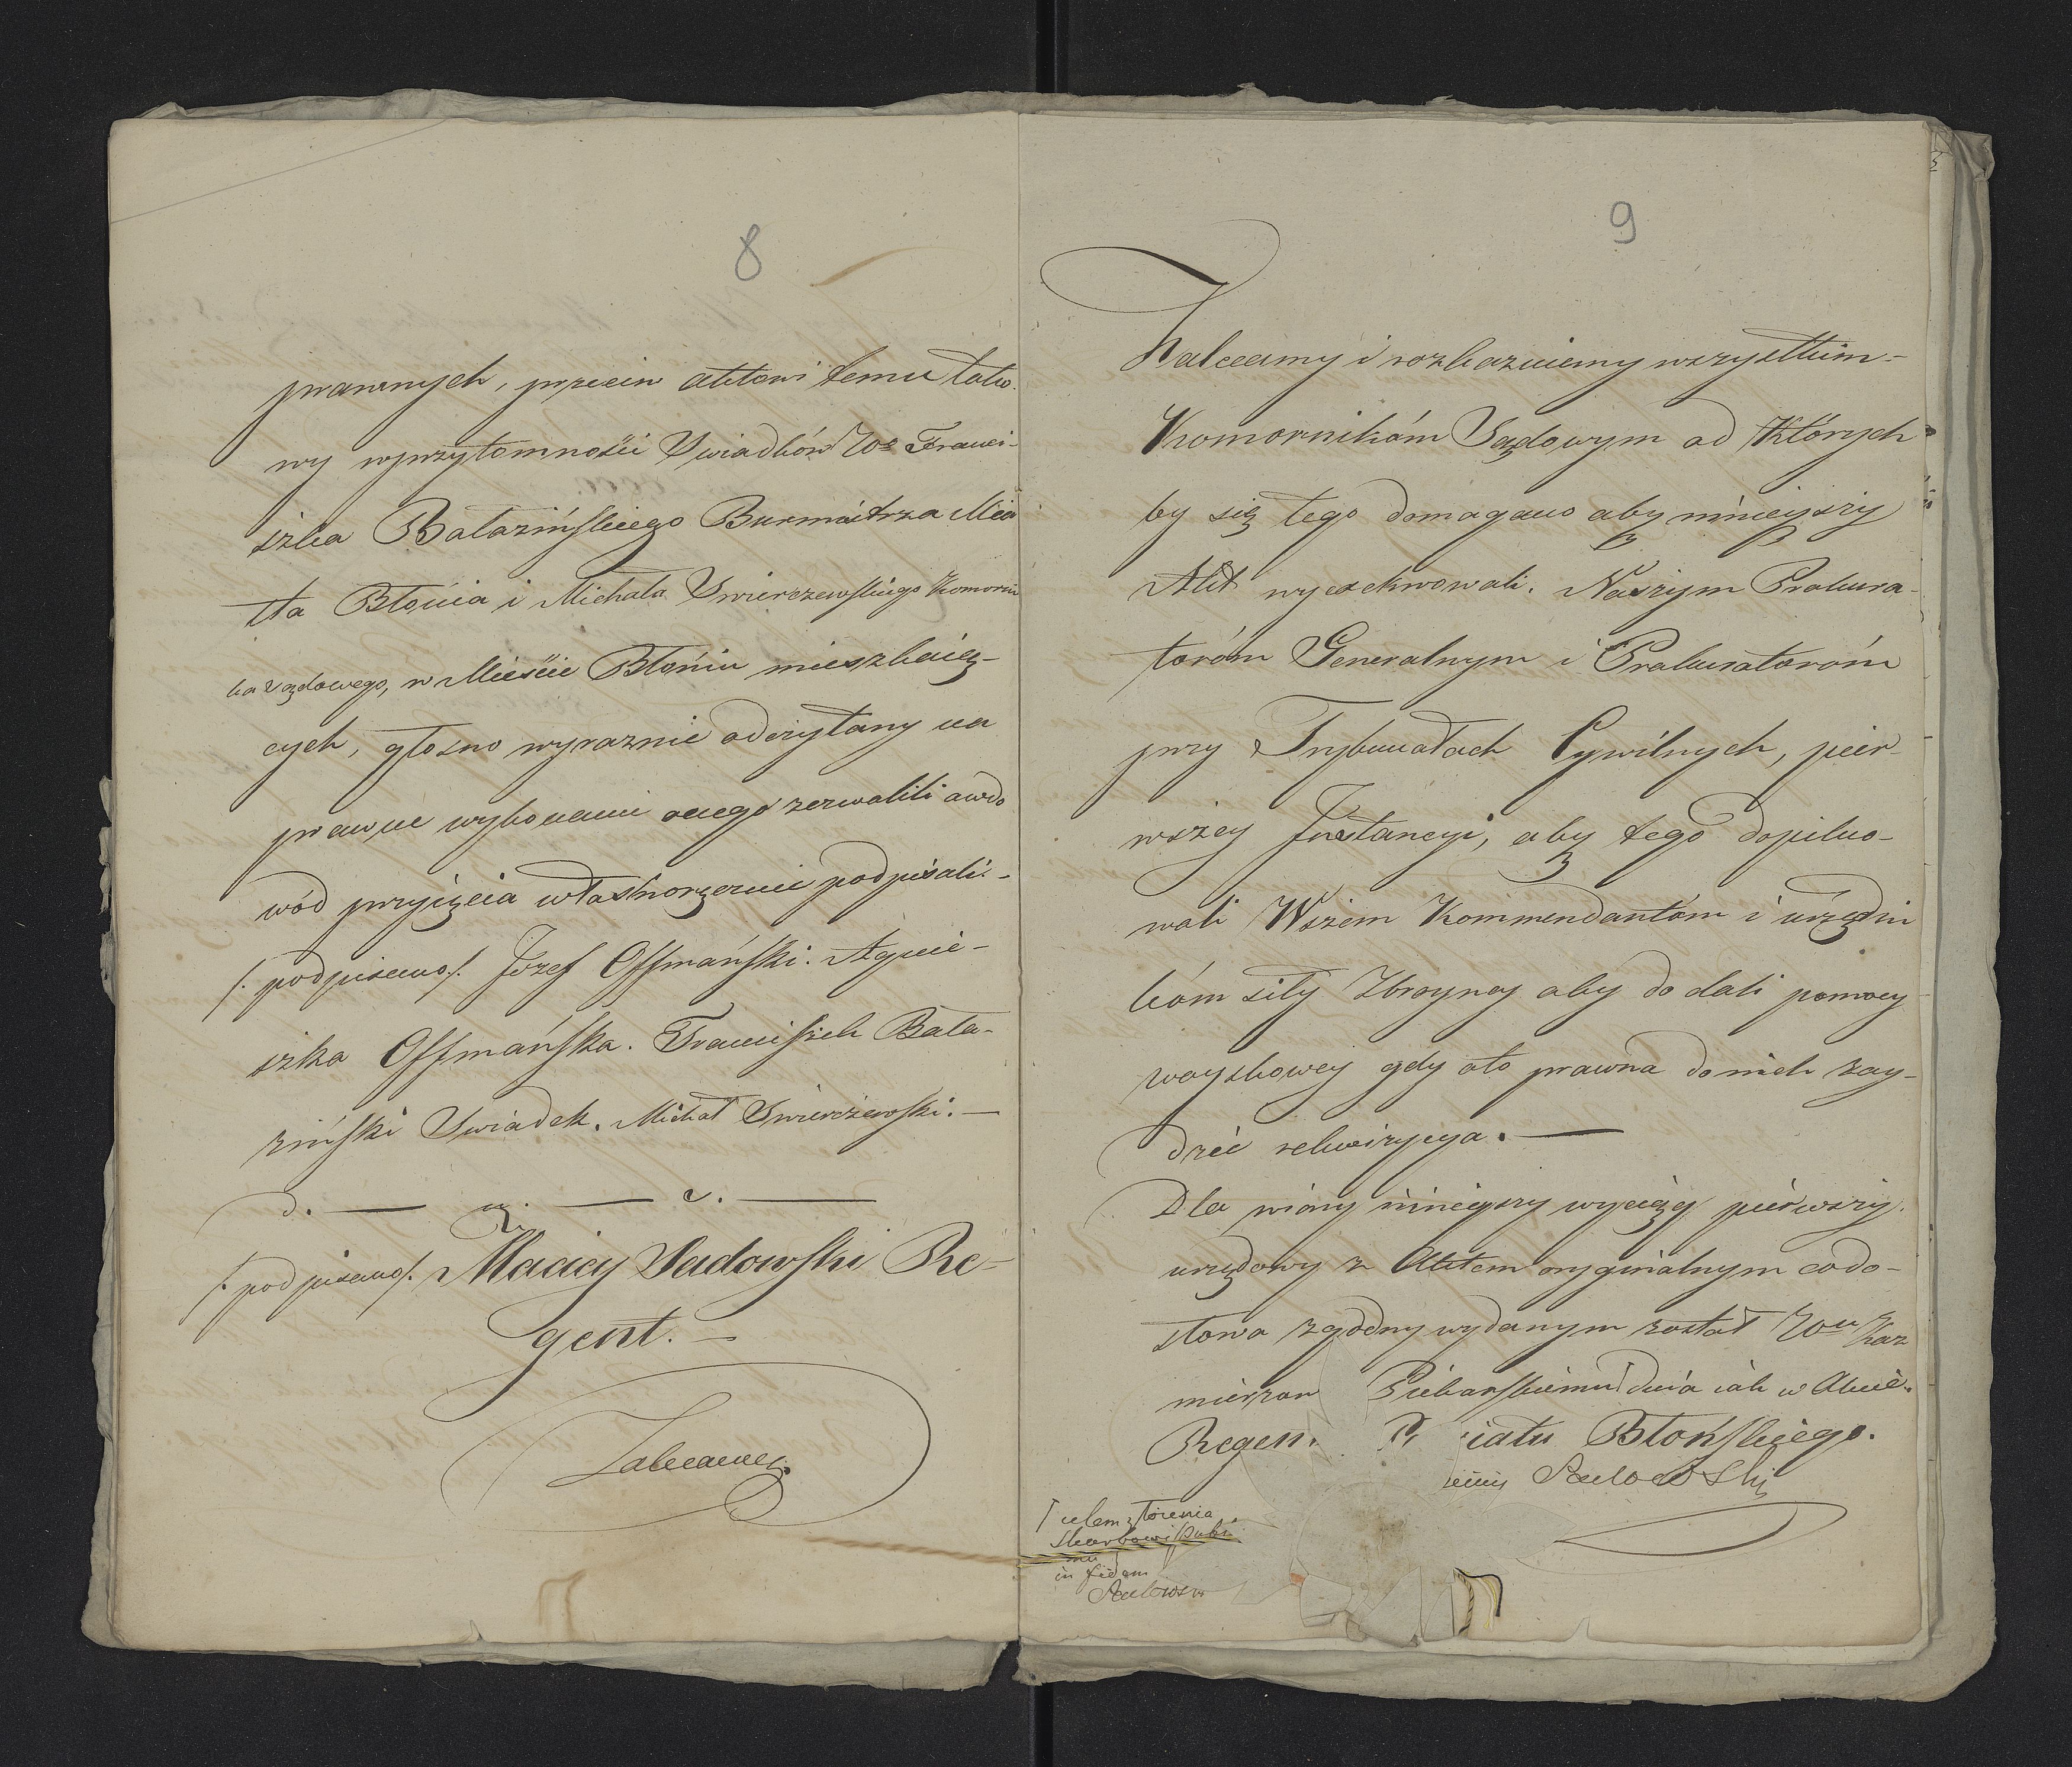 8
prawnych, przeciw aktowi temu tako-
wy wprzytomności Swiadków Ur. Franci-
szka Bałazińskiego Burmistrza Mia
sta Błonia i Michała Swierczewskiego Komorni
ka Sądowego, w Mieście Błoniu mieszkaią-
cych, głosno wyraznie odczytany na
prawne wykonanie onego zezwolili a w do
wód przyięcia własnoręcznie podpisali. -
/: podpisano/: Józef Offmański. Agnie-
szka Offmańska. Franciszek Bała-
ziński Swiadek. Michał Swierczewski. —
d. — u. — c. —
/: podpisano/: Maciey Sadowski Re-
gent. -
Zalecamy
9
Zalecamy i rozkazuiemy wszystkim
Komornikóm Sądowym od których
by się tego domagano aby ninieyszy
Akt wyexekwowali. Naszym Prokura-
toróm Generalnym i Prokuratoróm
przy Trybunałach Cywilnych, pier-
wszey Instancyi, aby tego dopilno-
wali Wszem Kommendantóm i urzędni
kóm siły Zbroyney aby dodali pomocy
woyskowey gdy oto prawna do nich zay-
dzie rekwizycya. —
Dla wiary ninieyszy wyciąg pierwszy
urzędowy z Aktem oryginalnym co do-
słowa zgodny wydanym został Ur. Kaz
mierzow Piekarskiemu dnia iak w Akcie.
Regen. P iatu Błońskiego.
Sadowski
celem złożenia
Skarbowi Publi
mu
in fidem
Sadowski